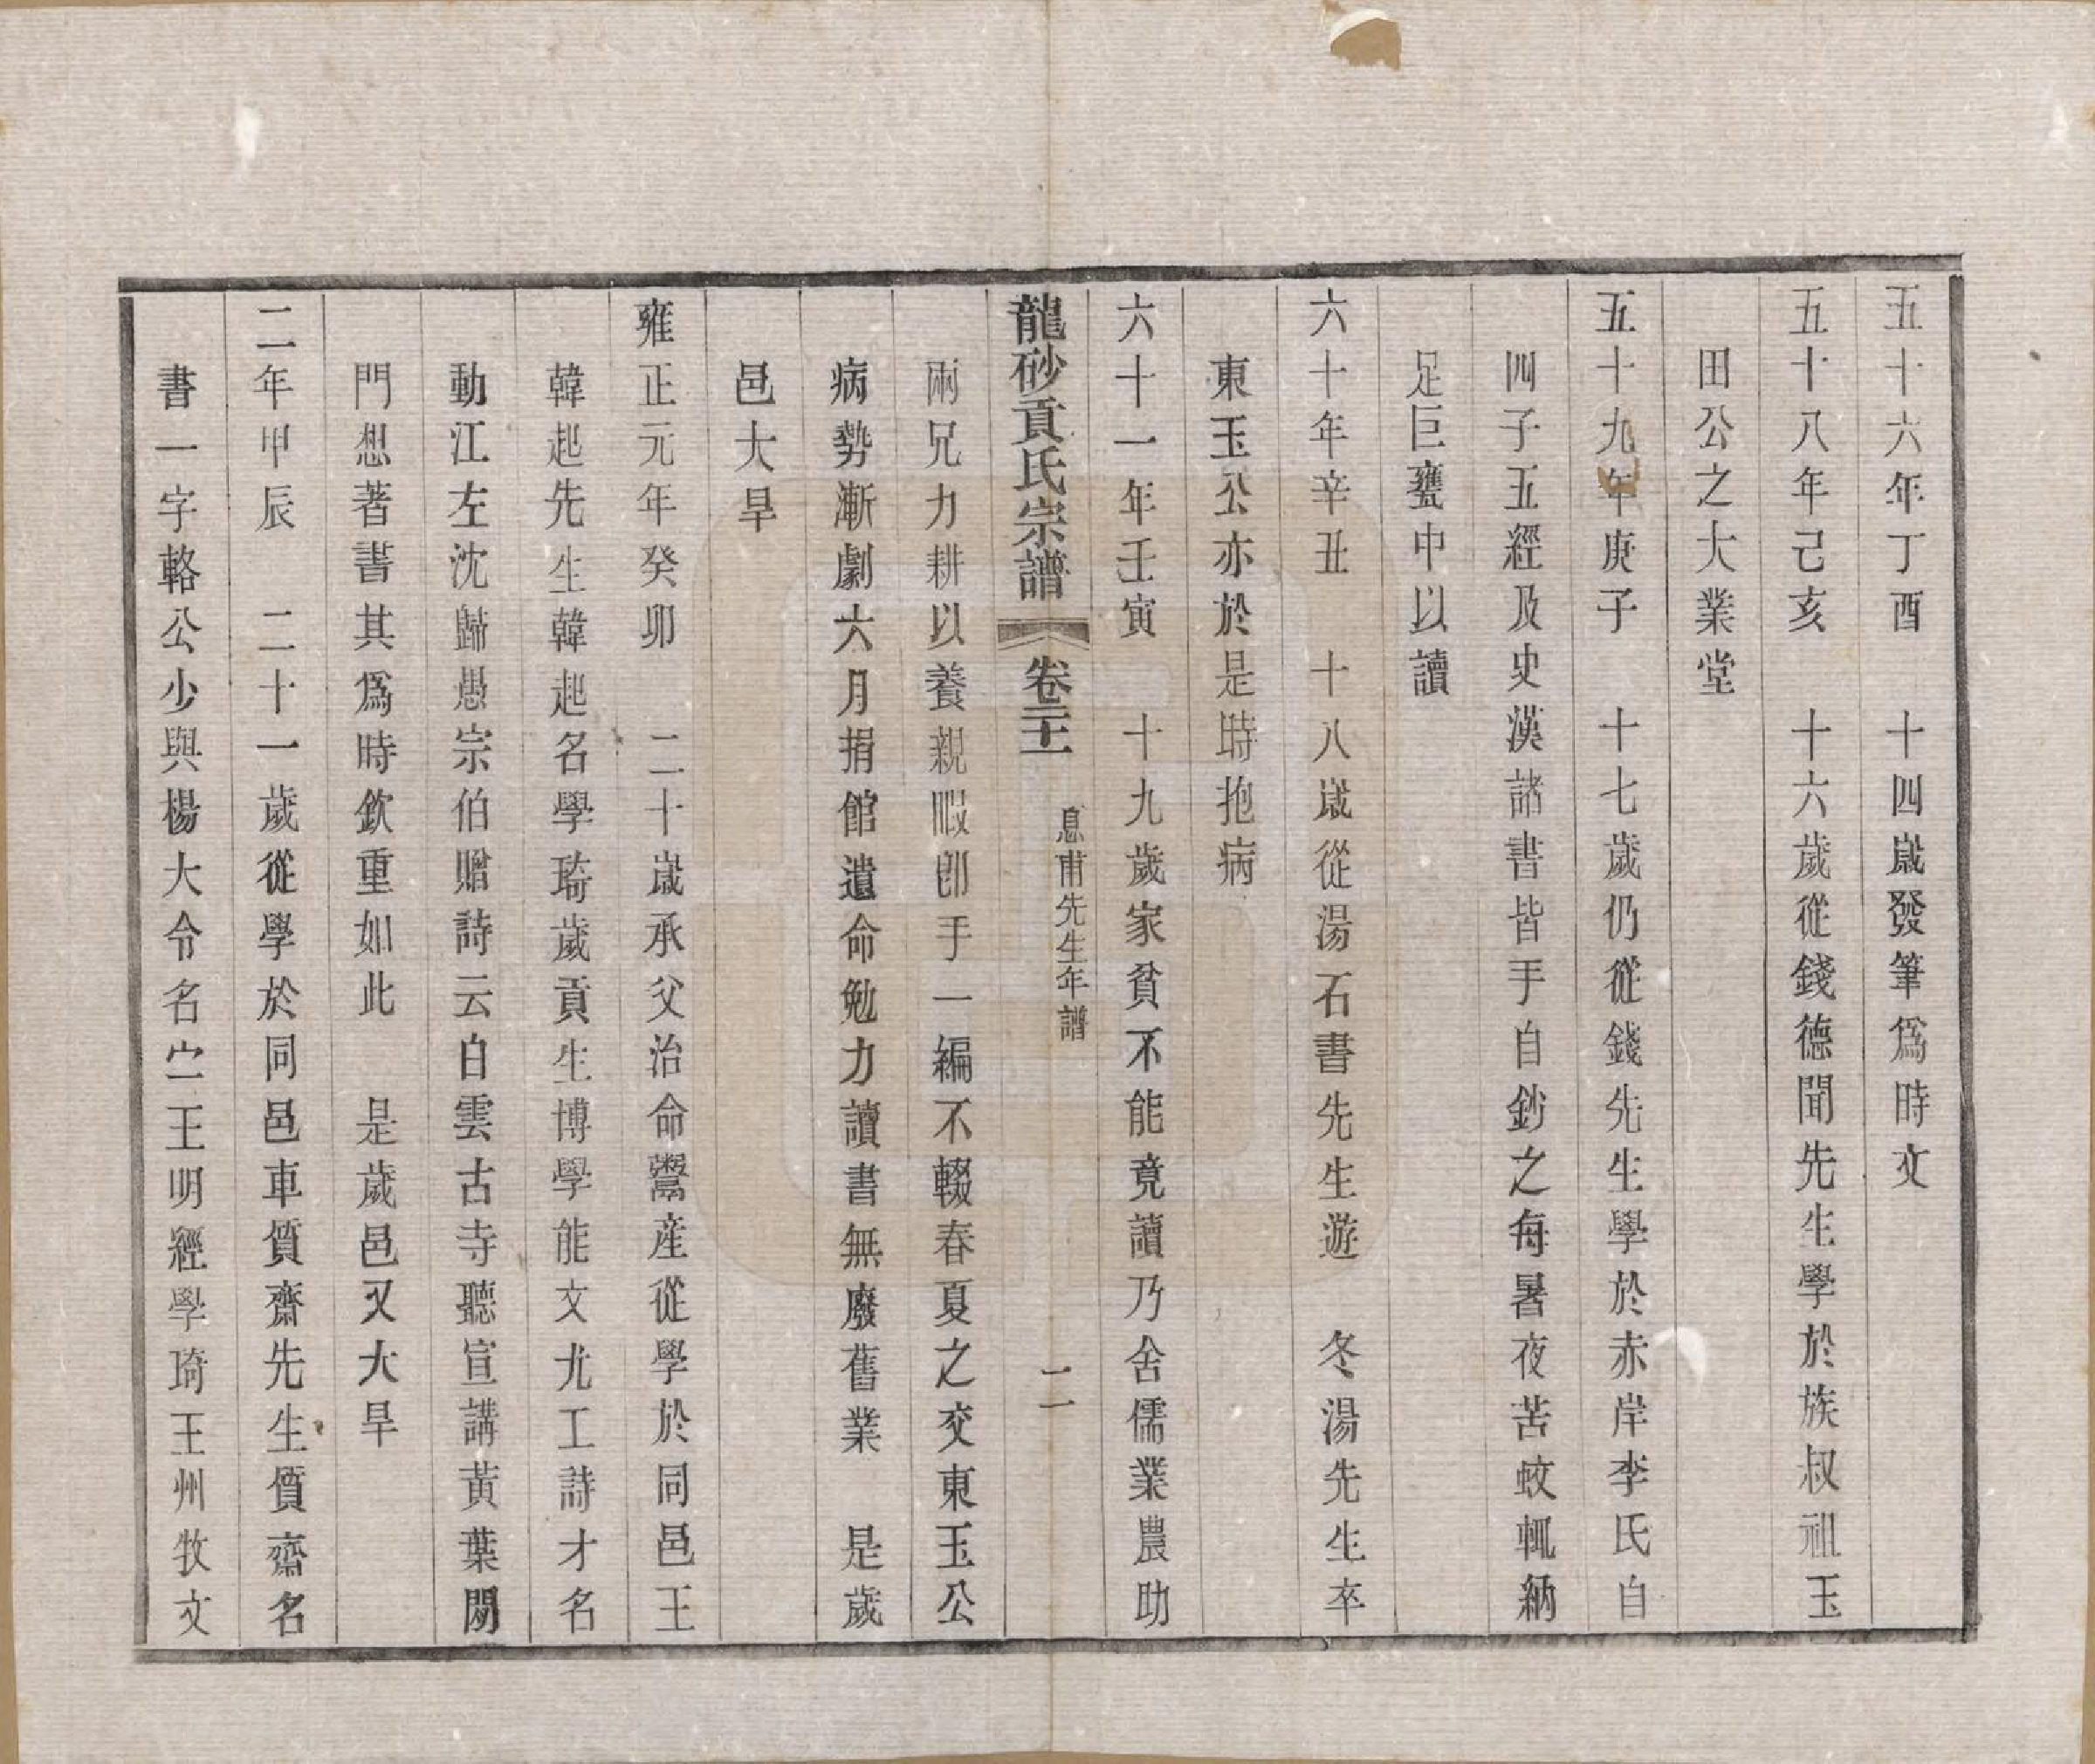 五十六年丁酉　十四歲發筆爲時文
五十八年己亥　十六歲從錢德聞先生學於族叔祖玉
田公之大業堂
五十九年庚子　十七歲仍從錢先生學於赤岸李氏自
四子五經及史漢諸書皆手自鈔之每暑夜苦蚊輒納
足巨甕中以讀
六十年辛丑　十八歲從湯石書先生遊　冬湯先生卒
東玉公亦於是時抱病
六十一年壬寅　十九歲家貧不能竟讀乃舍儒業農助
龍砂貢氏宗譜　卷二十一　息甫先生年譜　二
兩兄力耕以養親暇卽手一編不輟春夏之交東玉公
病勢漸劇六月捐館遺命勉力讀書無廢舊業　是歲
邑大旱
雍正元年癸卯　二十歲承父治命鬻産從學於同邑王
韓起先生韓起名學琦歲貢生博學能文尤工詩才名
動江左沈歸愚宗伯贈詩云白雲古寺聽宣講黃葉閉
門想著書其爲時欽重如此　是歲邑又大旱
二年甲辰　二十一歲從學於同邑車質齋先生質齋名
書一字輅公少與楊大令名宁王明經學琦王州牧文